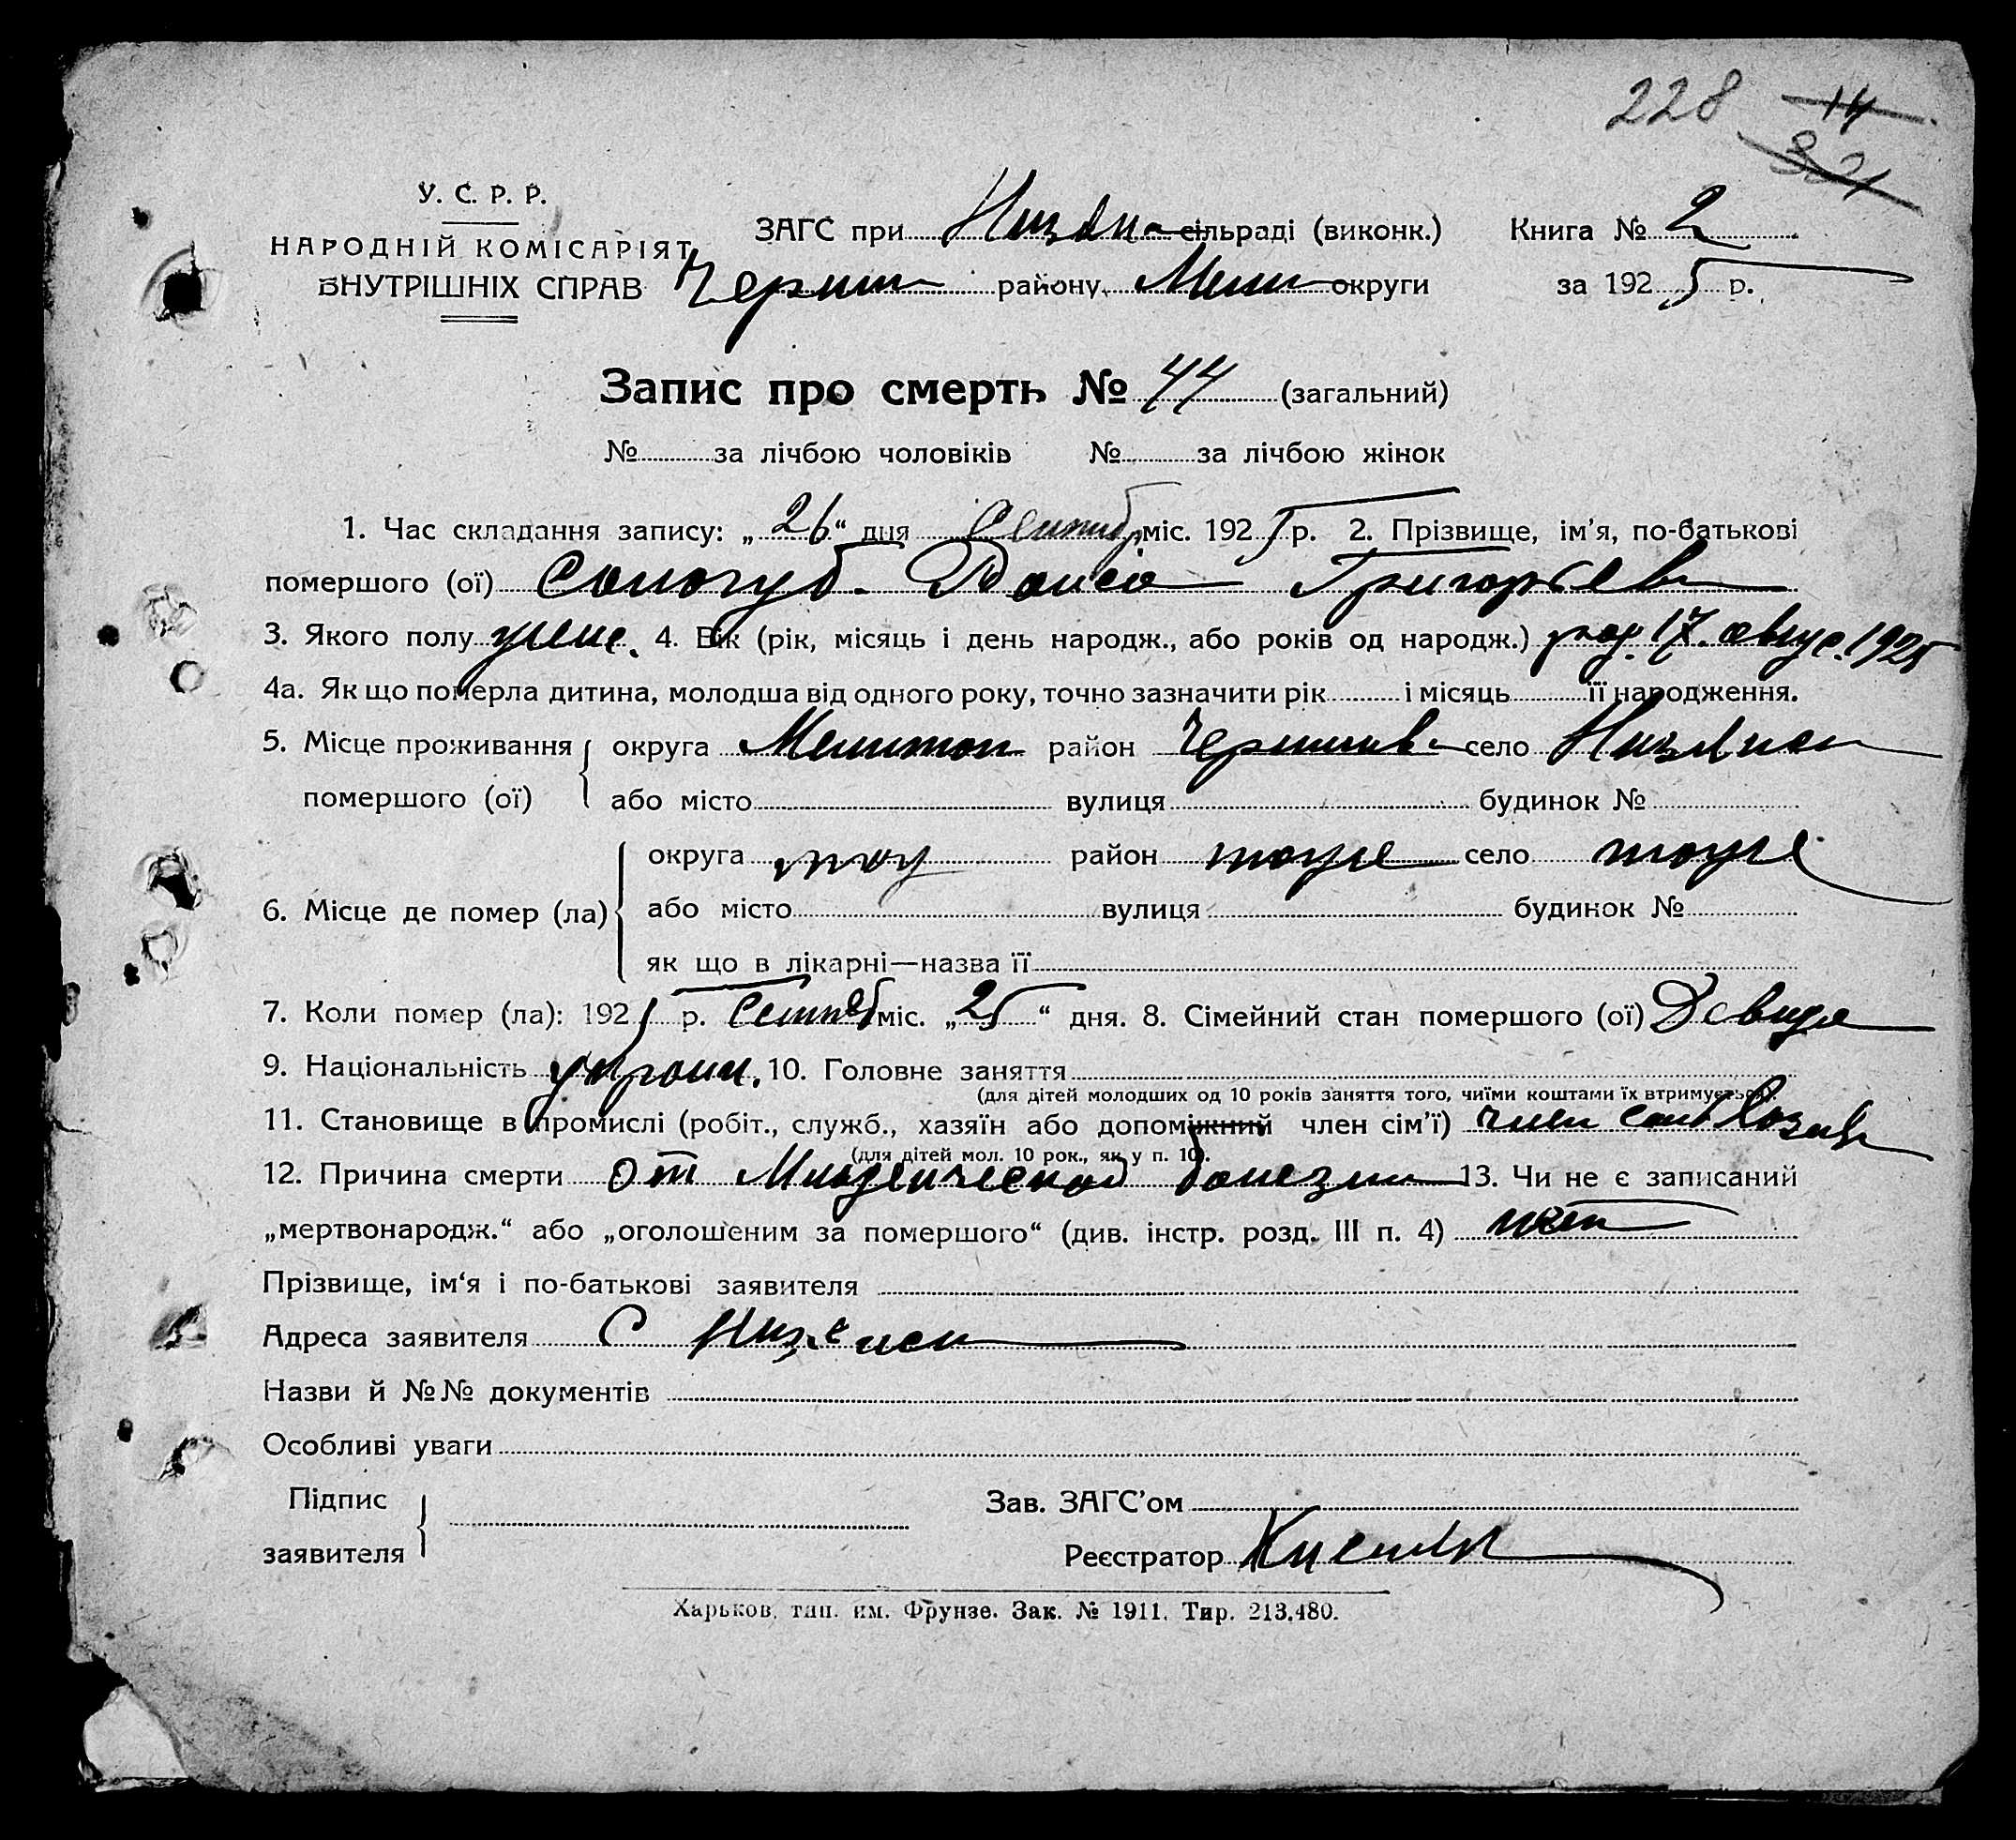 228 14
321
У. С. Р. Р.
НАРОДНІЙ КОМІСАРІЯТ
ВНУТРІШНІХ СПРАВ
ЗАГС при сільраді (виконк.) Книга № 2
району округи за 1925 р.
Запис про смерть № 44 (загальний)
№ за лічбою чоловіків № за лічбою жінок
1. Час складання запису: „26“ дня Сентяб міс. 1925 р. 2. Прізвище, ім'я, по-батькові
помершого (ої) Сологуб Раиса Григорьев
3. Якого полу женс. 4. Вік (рік, місяць і день народж., або років од народж.) род. 17. авгус. 1925
4а. Як що померла дитина, молодша від одного року, точно зазначити рік і місяць її народження.
5. Місце проживання округа Мелитоп район село
помершого (ої) або місто вулиця будинок №
округа тоу район тоуже село тоуже
6. Місце де помер (ла) або місто вулиця будинок №
як що в лікарні—назва її
7. Коли помер (ла): 1925 р. Сентяб міс. „25“ дня. 8. Сімейний стан помершого (ої)
9. Національність украин. 10. Головне заняття
(для дітей молодших од 10 років заняття того, чиїми коштами їх втримується).
11. Становище в промислі (робіт., служб., хазяїн або допоміжний член сім'ї) член
(для дітей мол. 10 рок., як у п. 10).
12. Причина смерти от Младенческой болезни 13. Чи не є записаний
„мертвонародж.“ або „оголошеним за помершого“ (див. інстр. розд. III п. 4) нет
Прізвище, ім'я і по-батькові заявителя
Адреса заявителя С
Назви й №№ документів
Особливі уваги
Підпис Зав. ЗАГС'ом
заявителя Реєстратор
Харьков, тип. им. Фрунзе. Зак. № 1911. Тир. 213.480.